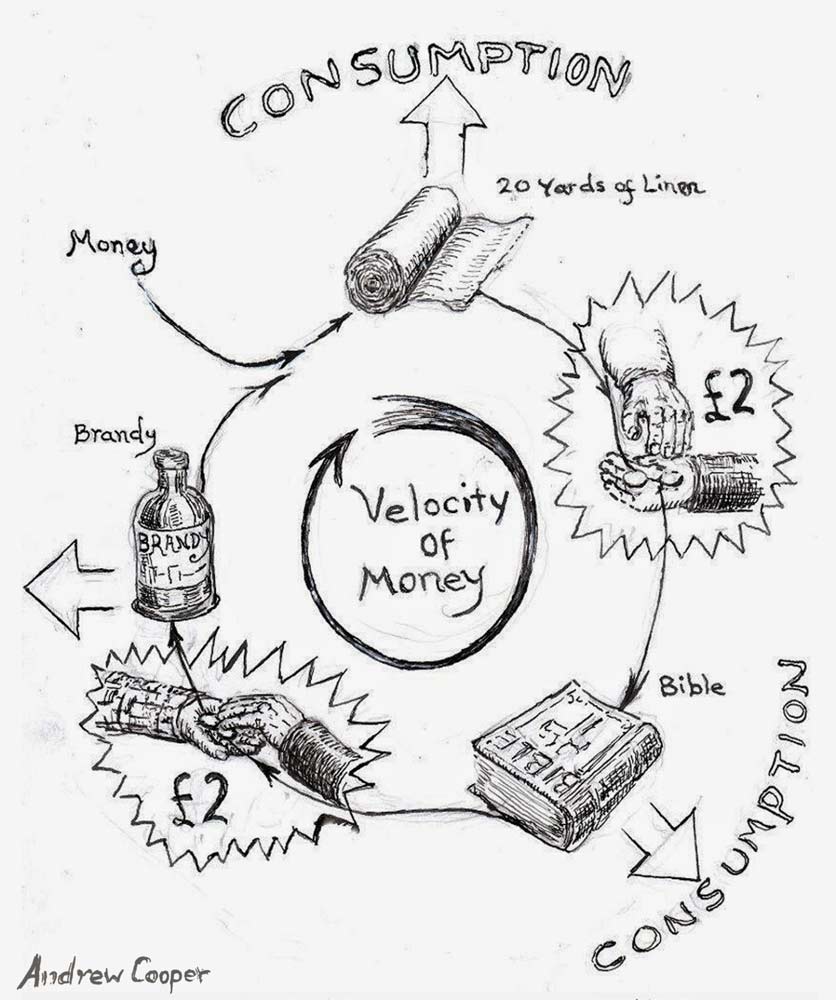 CONSUMPTION
20 Yards of Linen
Money
£2
Brandy
BRANDY
Velocity
of
Money
Bible
BIBLE
£2
CONSUMPTION
Andrew Cooper